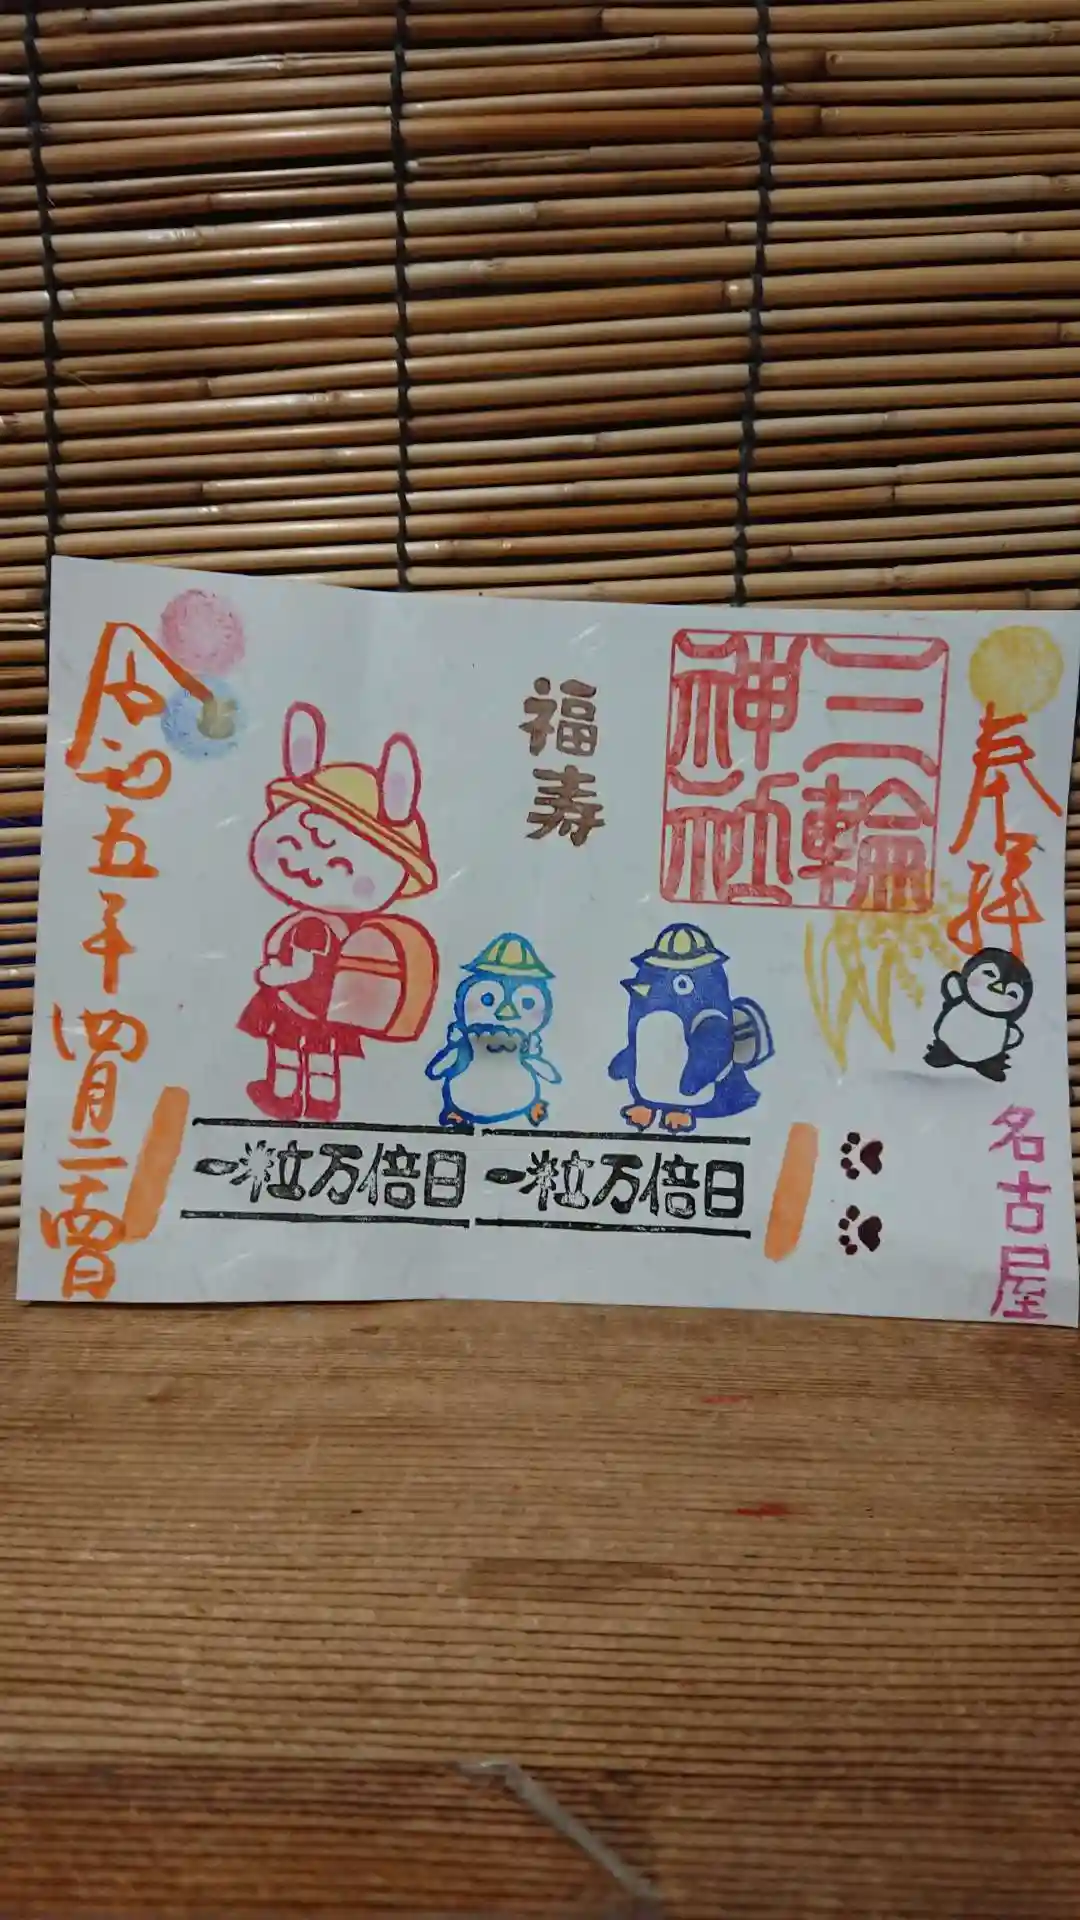 奉拝
三輪
神社
名古屋
福寿
一粒万倍日 一粒万倍日
令和五年四月二十四日